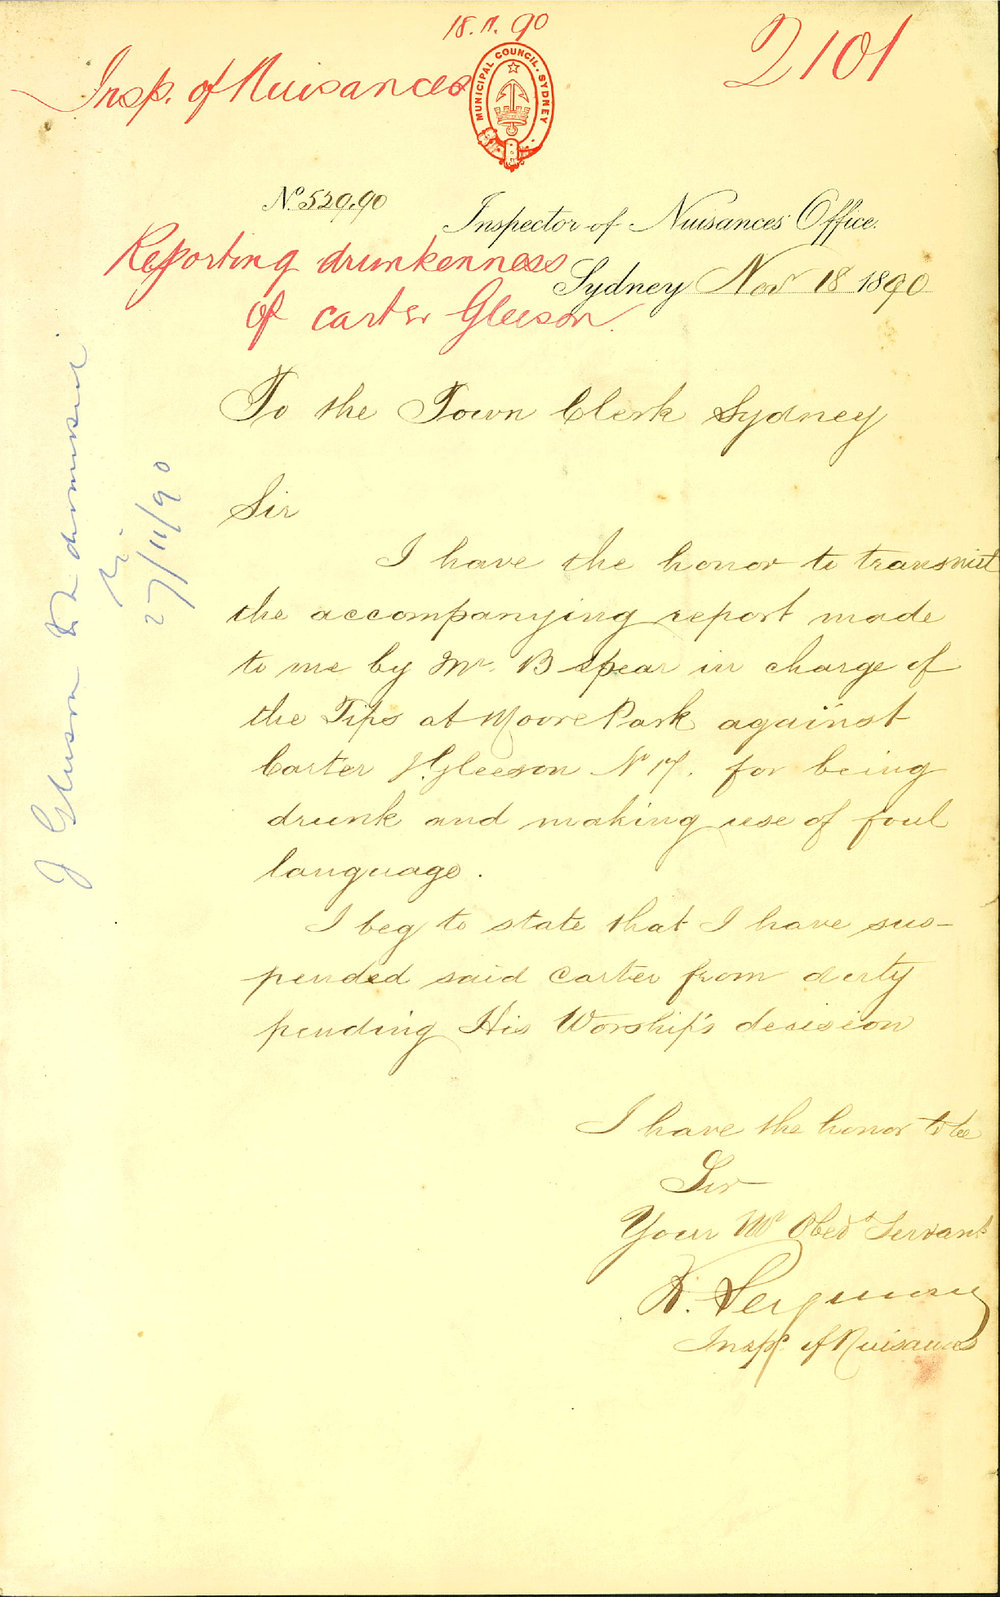 18.11.90
2101
Insp. of Nuisances
MUNICIPAL COUNCIL. SYDNEY
No. 529.90
Inspector of Nuisances Office.
Reporting drunkenness
of carter Gleeson.
Sydney Nov 18 1890
To the Town Clerk Sydney
Sir
I have the honor to transmit
the accompanying report made
to me by Mr. B Spear in charge of
the Tips at Moore Park against
Carter J. Gleeson No 17. for being
drunk and making use of foul
language.
I beg to state that I have sus-
pended said Carter from duty
pending His Worship's decision
I have the honor to be
Sir
Your Mo Obedt Servant
Insp. of Nuisances
J Gleeson to be dismissed
27/11/90